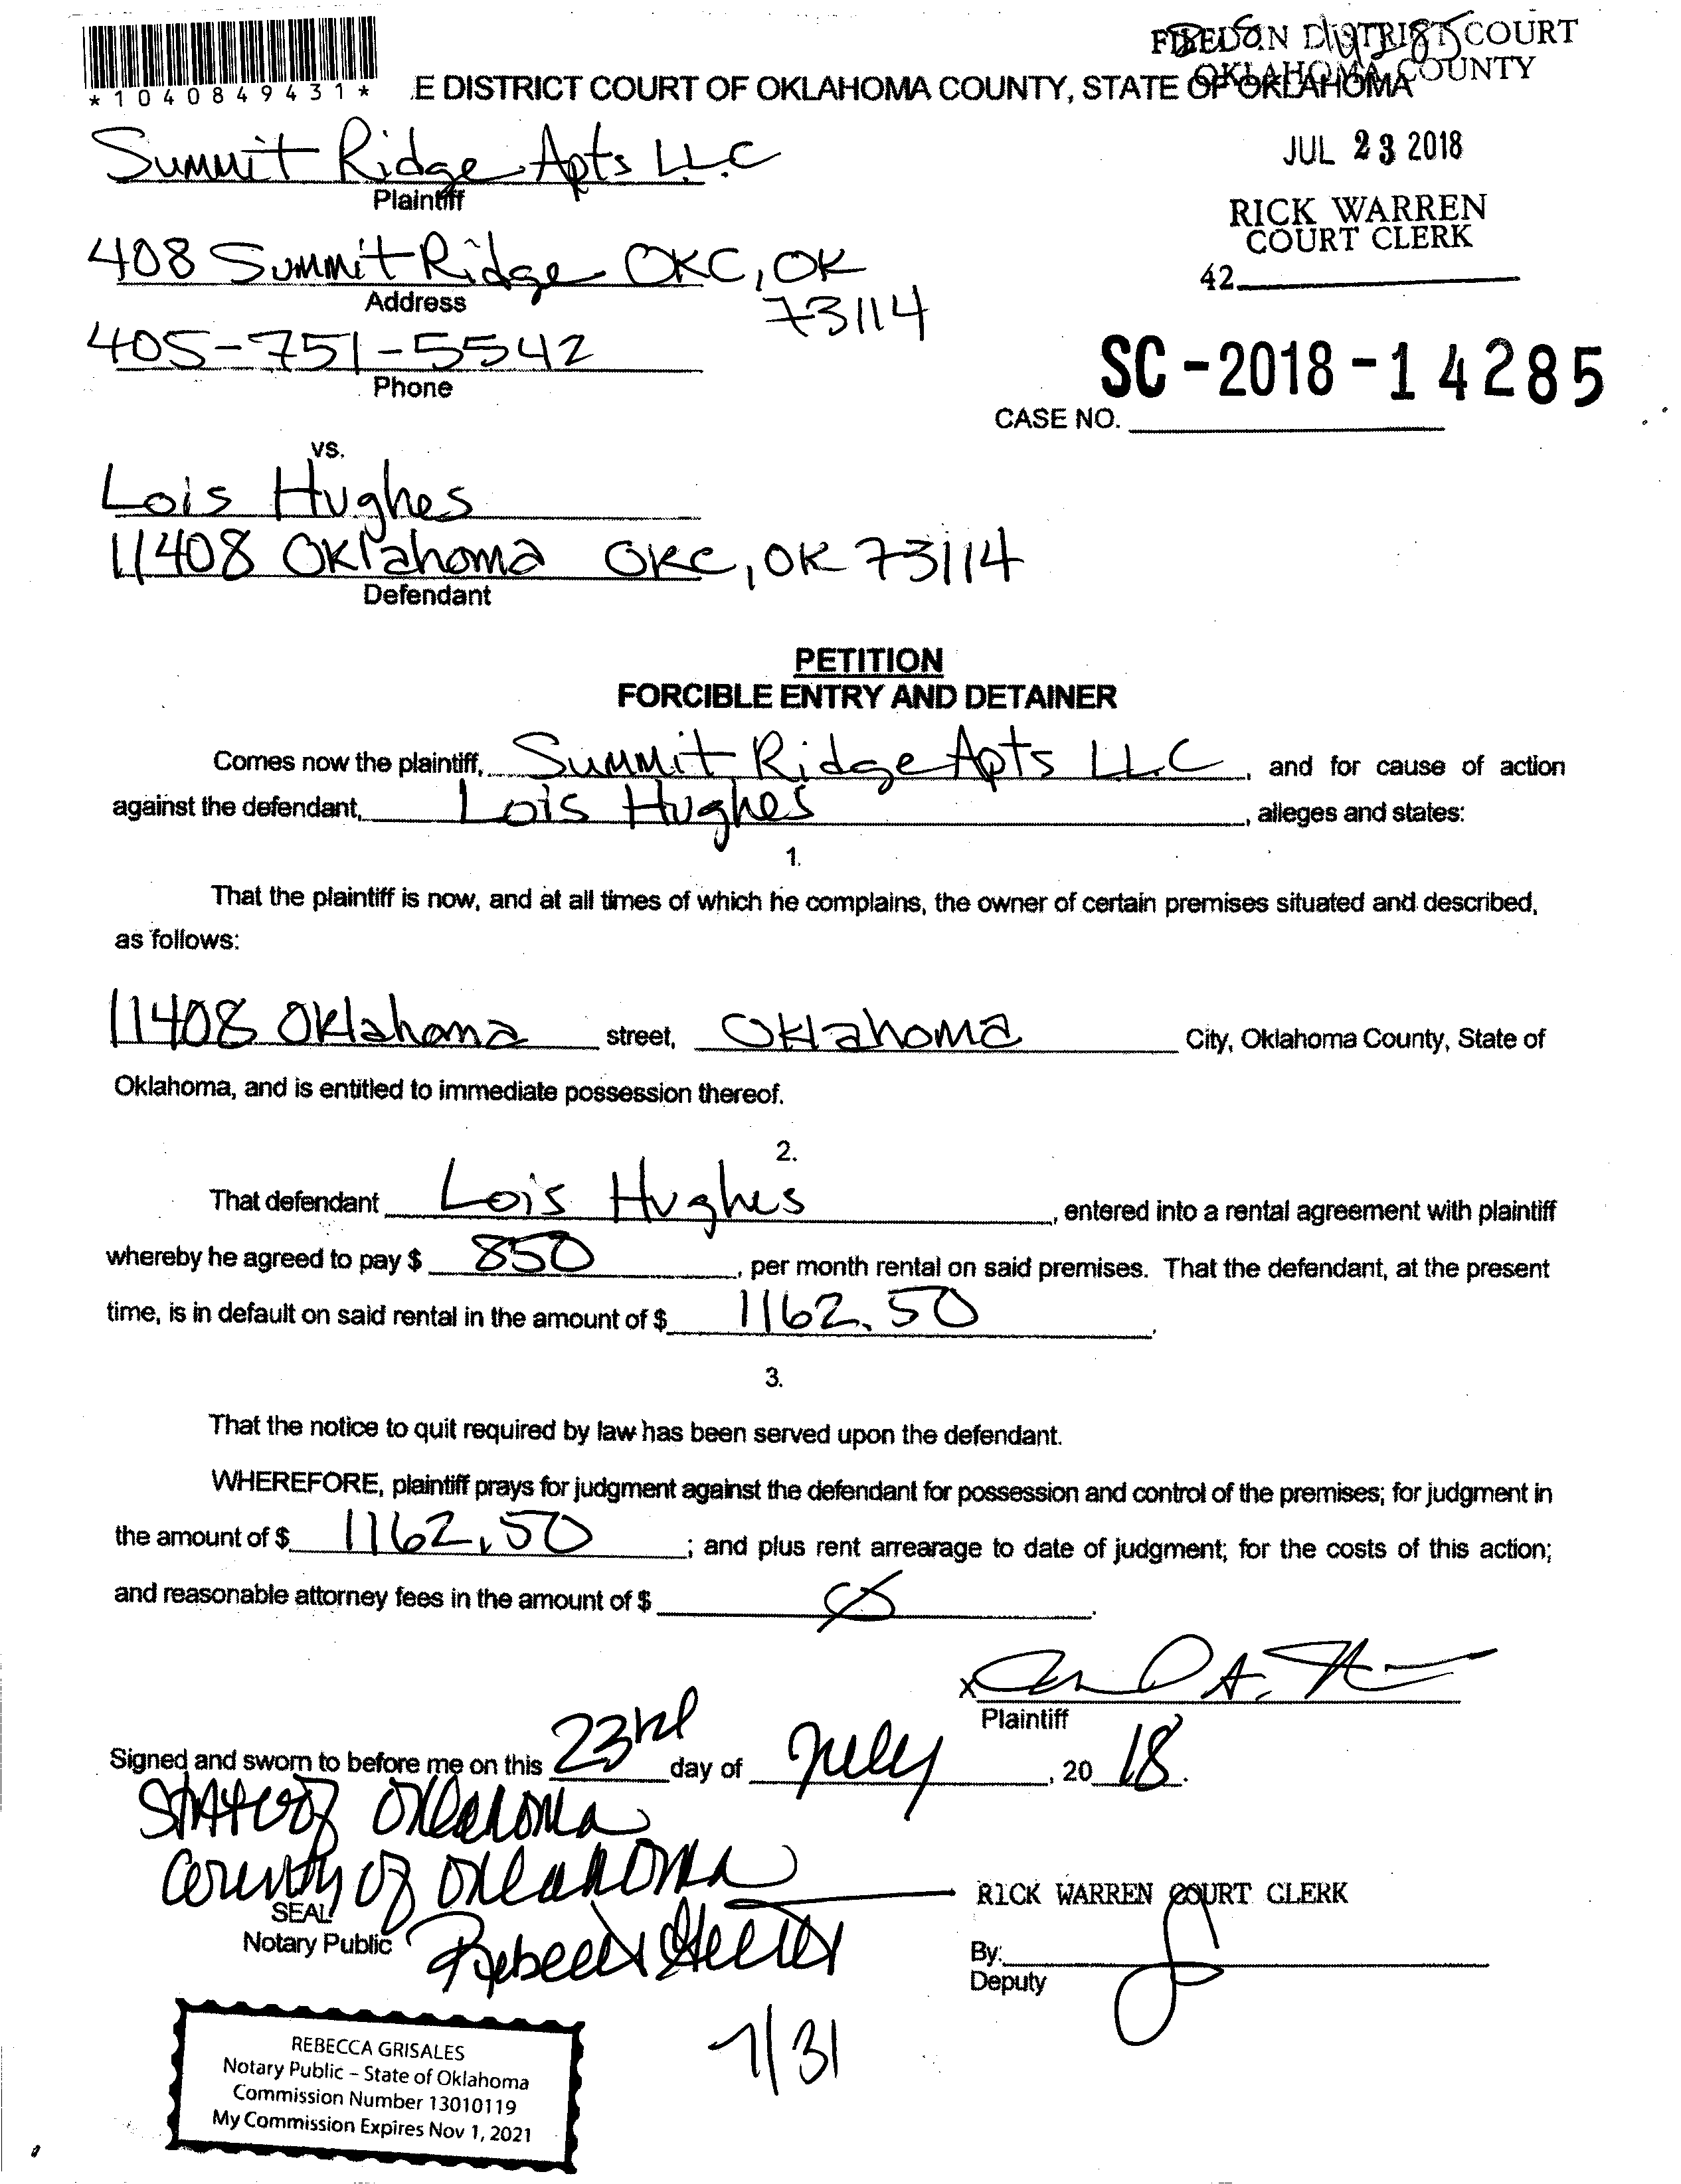 *1040849431*
FILED IN DISTRICT COURT
OKLAHOMA COUNTY
E DISTRICT COURT OF OKLAHOMA COUNTY, STATE OF OKLAHOMA
JUL 23 2018
Summit Ridge Apts LLC
Plaintiff
RICK WARREN
COURT CLERK
408 Summit Ridge OKC, OK
73114
Address
42
405-751-5542
Phone
SC-2018-14285
CASE NO.
vs.
Lois Hughes
11408 Oklahoma OKC, OK 73114
Defendant
PETITION
FORCIBLE ENTRY AND DETAINER
Comes now the plaintiff, Summit Ridge Apts LLC, and for cause of action
against the defendant, Lois Hughes, alleges and states:
1.
That the plaintiff is now, and at all times of which he complains, the owner of certain premises situated and described,
as follows:
11408 Oklahoma street, Oklahoma City, Oklahoma County, State of
Oklahoma, and is entitled to immediate possession thereof.
2.
That defendant Lois Hughes, entered into a rental agreement with plaintiff
whereby he agreed to pay $ 850, per month rental on said premises. That the defendant, at the present
time, is in default on said rental in the amount of $ 1162.50.
3.
That the notice to quit required by law has been served upon the defendant.
WHEREFORE, plaintiff prays for judgment against the defendant for possession and control of the premises; for judgment in
the amount of $ 1162.50; and plus rent arrearage to date of judgment; for the costs of this action;
and reasonable attorney fees in the amount of $ Ø.
x
Plaintiff
Signed and sworn to before me on this 23rd day of July, 20 18.
State of Oklahoma
County of Oklahoma
SEAL
RICK WARREN COURT CLERK
Notary Public
By:
Deputy
7/31
REBECCA GRISALES
Notary Public – State of Oklahoma
Commission Number 13010119
My Commission Expires Nov 1, 2021